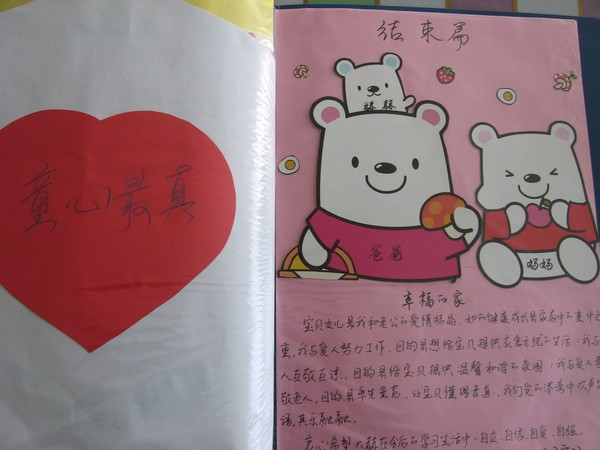 童心最真
结束篇
爸爸
妈妈
幸福的家
宝贝女儿是我和老公的爱情结晶,她的健康成长是家庭中的重中之
重,我与爱人努力工作,目的是想给宝贝提供衣食无忧的生活;我与
人互敬互谅,目的是给宝贝提供温馨和谐的氛围;我与爱人
敬老人,目的是率先垂范,让宝贝懂得孝道,我们家的
语,其乐融融。
衷心希望 在今后的学习生活中,自立、自信、自爱、自强。